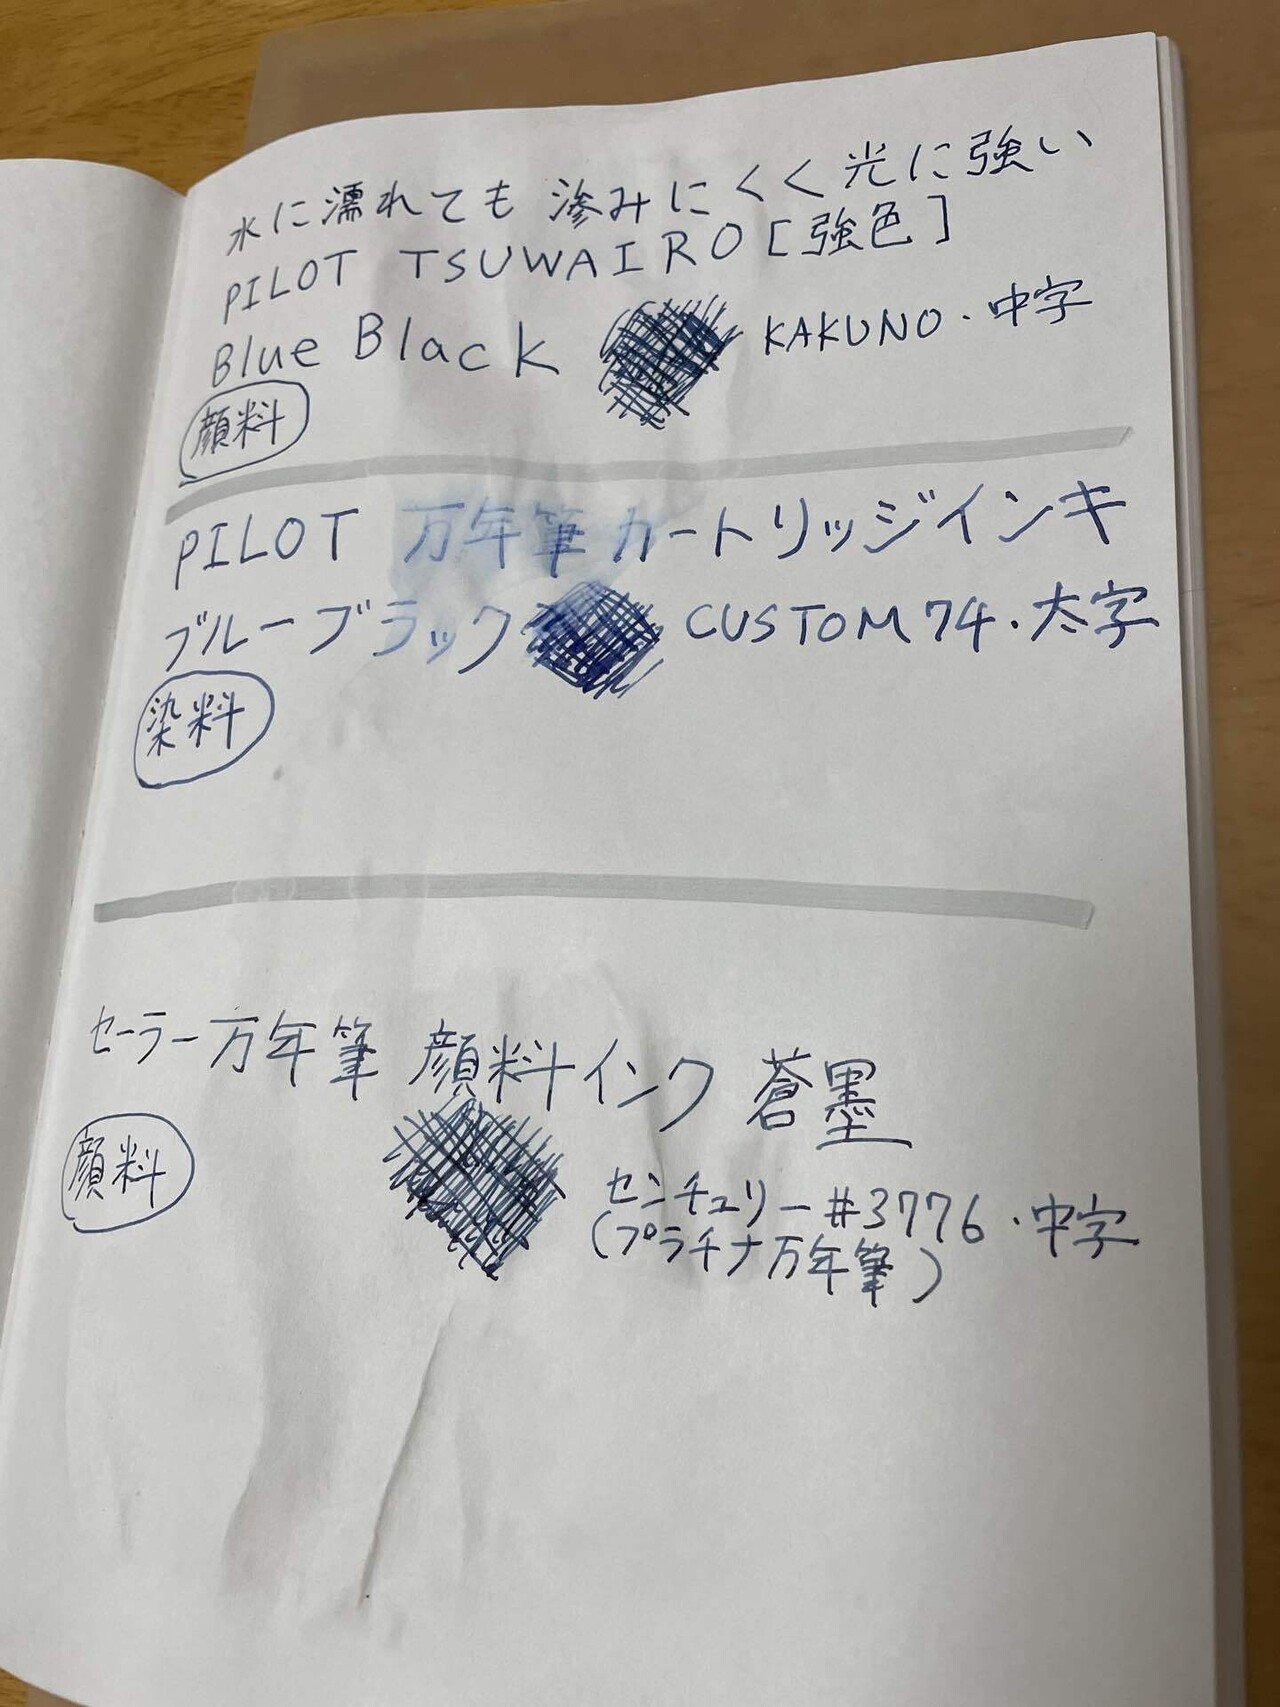 水に濡れても滲みにくく光に強い
PILOT TSUWAIRO [強色]
Blue Black KAKUNO・中字
顔料
PILOT 万年筆カートリッジインキ
ブルーブラック CUSTOM74・太字
染料
セーラー万年筆 顔料インク 蒼墨
顔料
センチュリー#3776・中字
(プラチナ万年筆)